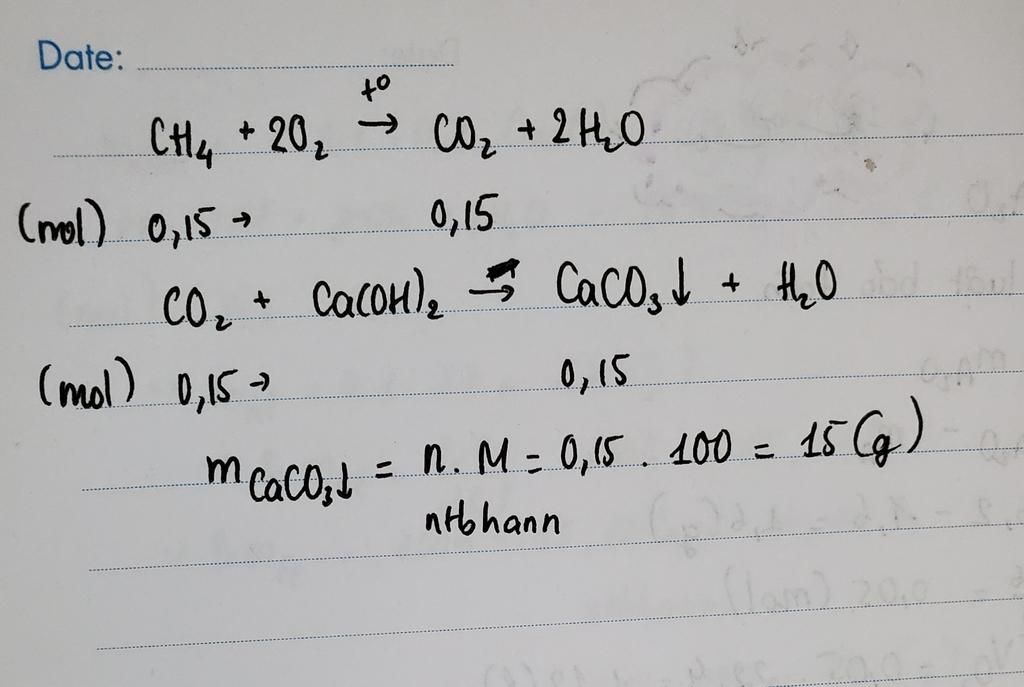 Date:
CH₄ + 2O₂ →(t⁰) CO₂ + 2H₂O
(mol) 0,15 → 0,15
CO₂ + Ca(OH)₂ → CaCO₃↓ + H₂O
(mol) 0,15 → 0,15
m CaCO₃↓ = n. M = 0,15 . 100 = 15 (g)
ntbhann